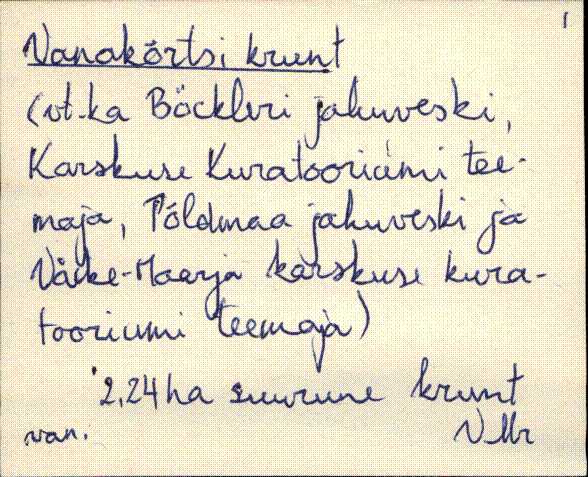 1
Vanakõrtsi krunt
(vt.ka Böckleri jahuveski,
Karskuse Kuratooriumi tee-
maja, Põldmaa jahuveski ja
Väike-Maarja karskuse kura-
tooriumi teemaja)
2,24 ha suurune krunt
van. VMr